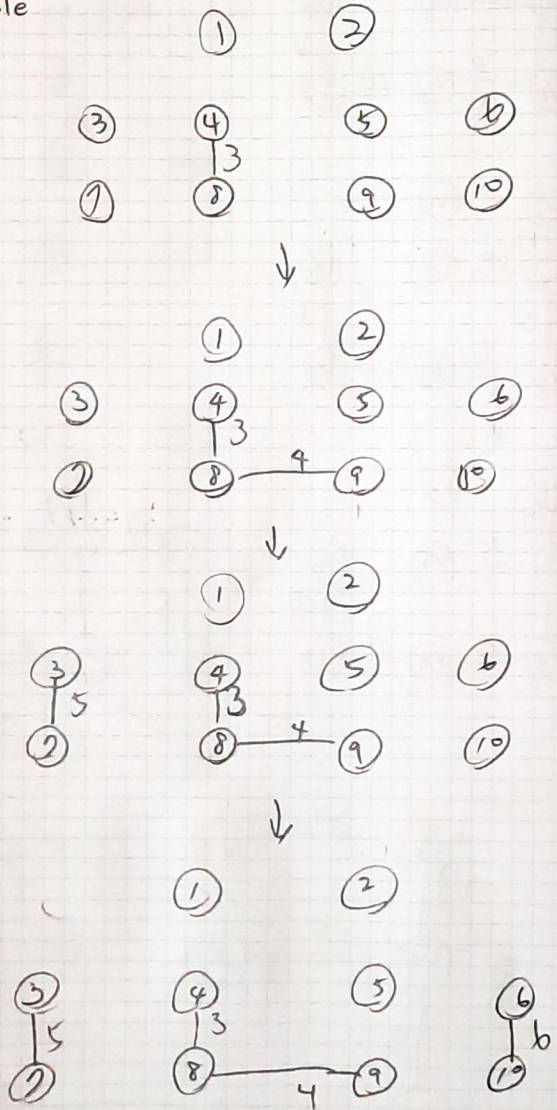 le
1 2
3 4 5 6
3
7 8 9 10
↓
1 2
3 4 5 6
3
4
7 8 9 10
↓
1 2
3 4 5 6
5 3
4
7 8 9 10
↓
1 2
3 4 5 6
5 3 6
7 8 9 10
4